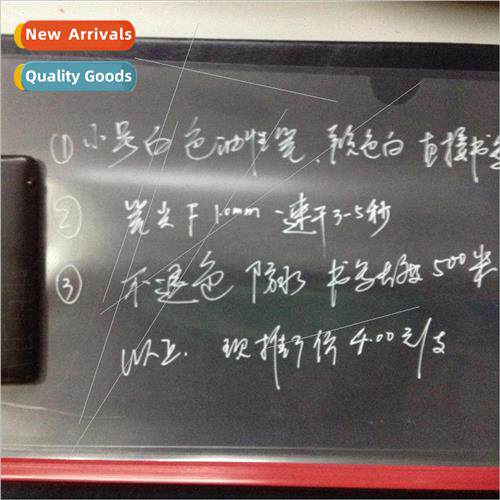 New Arrivals
Quality Goods
① 小号白色油性笔、颜色白 直接书
② 笔尖下1.0mm 速干3-5秒
③ 不退色 防水 书写长度500米
以上. 现推行价4.00元/支